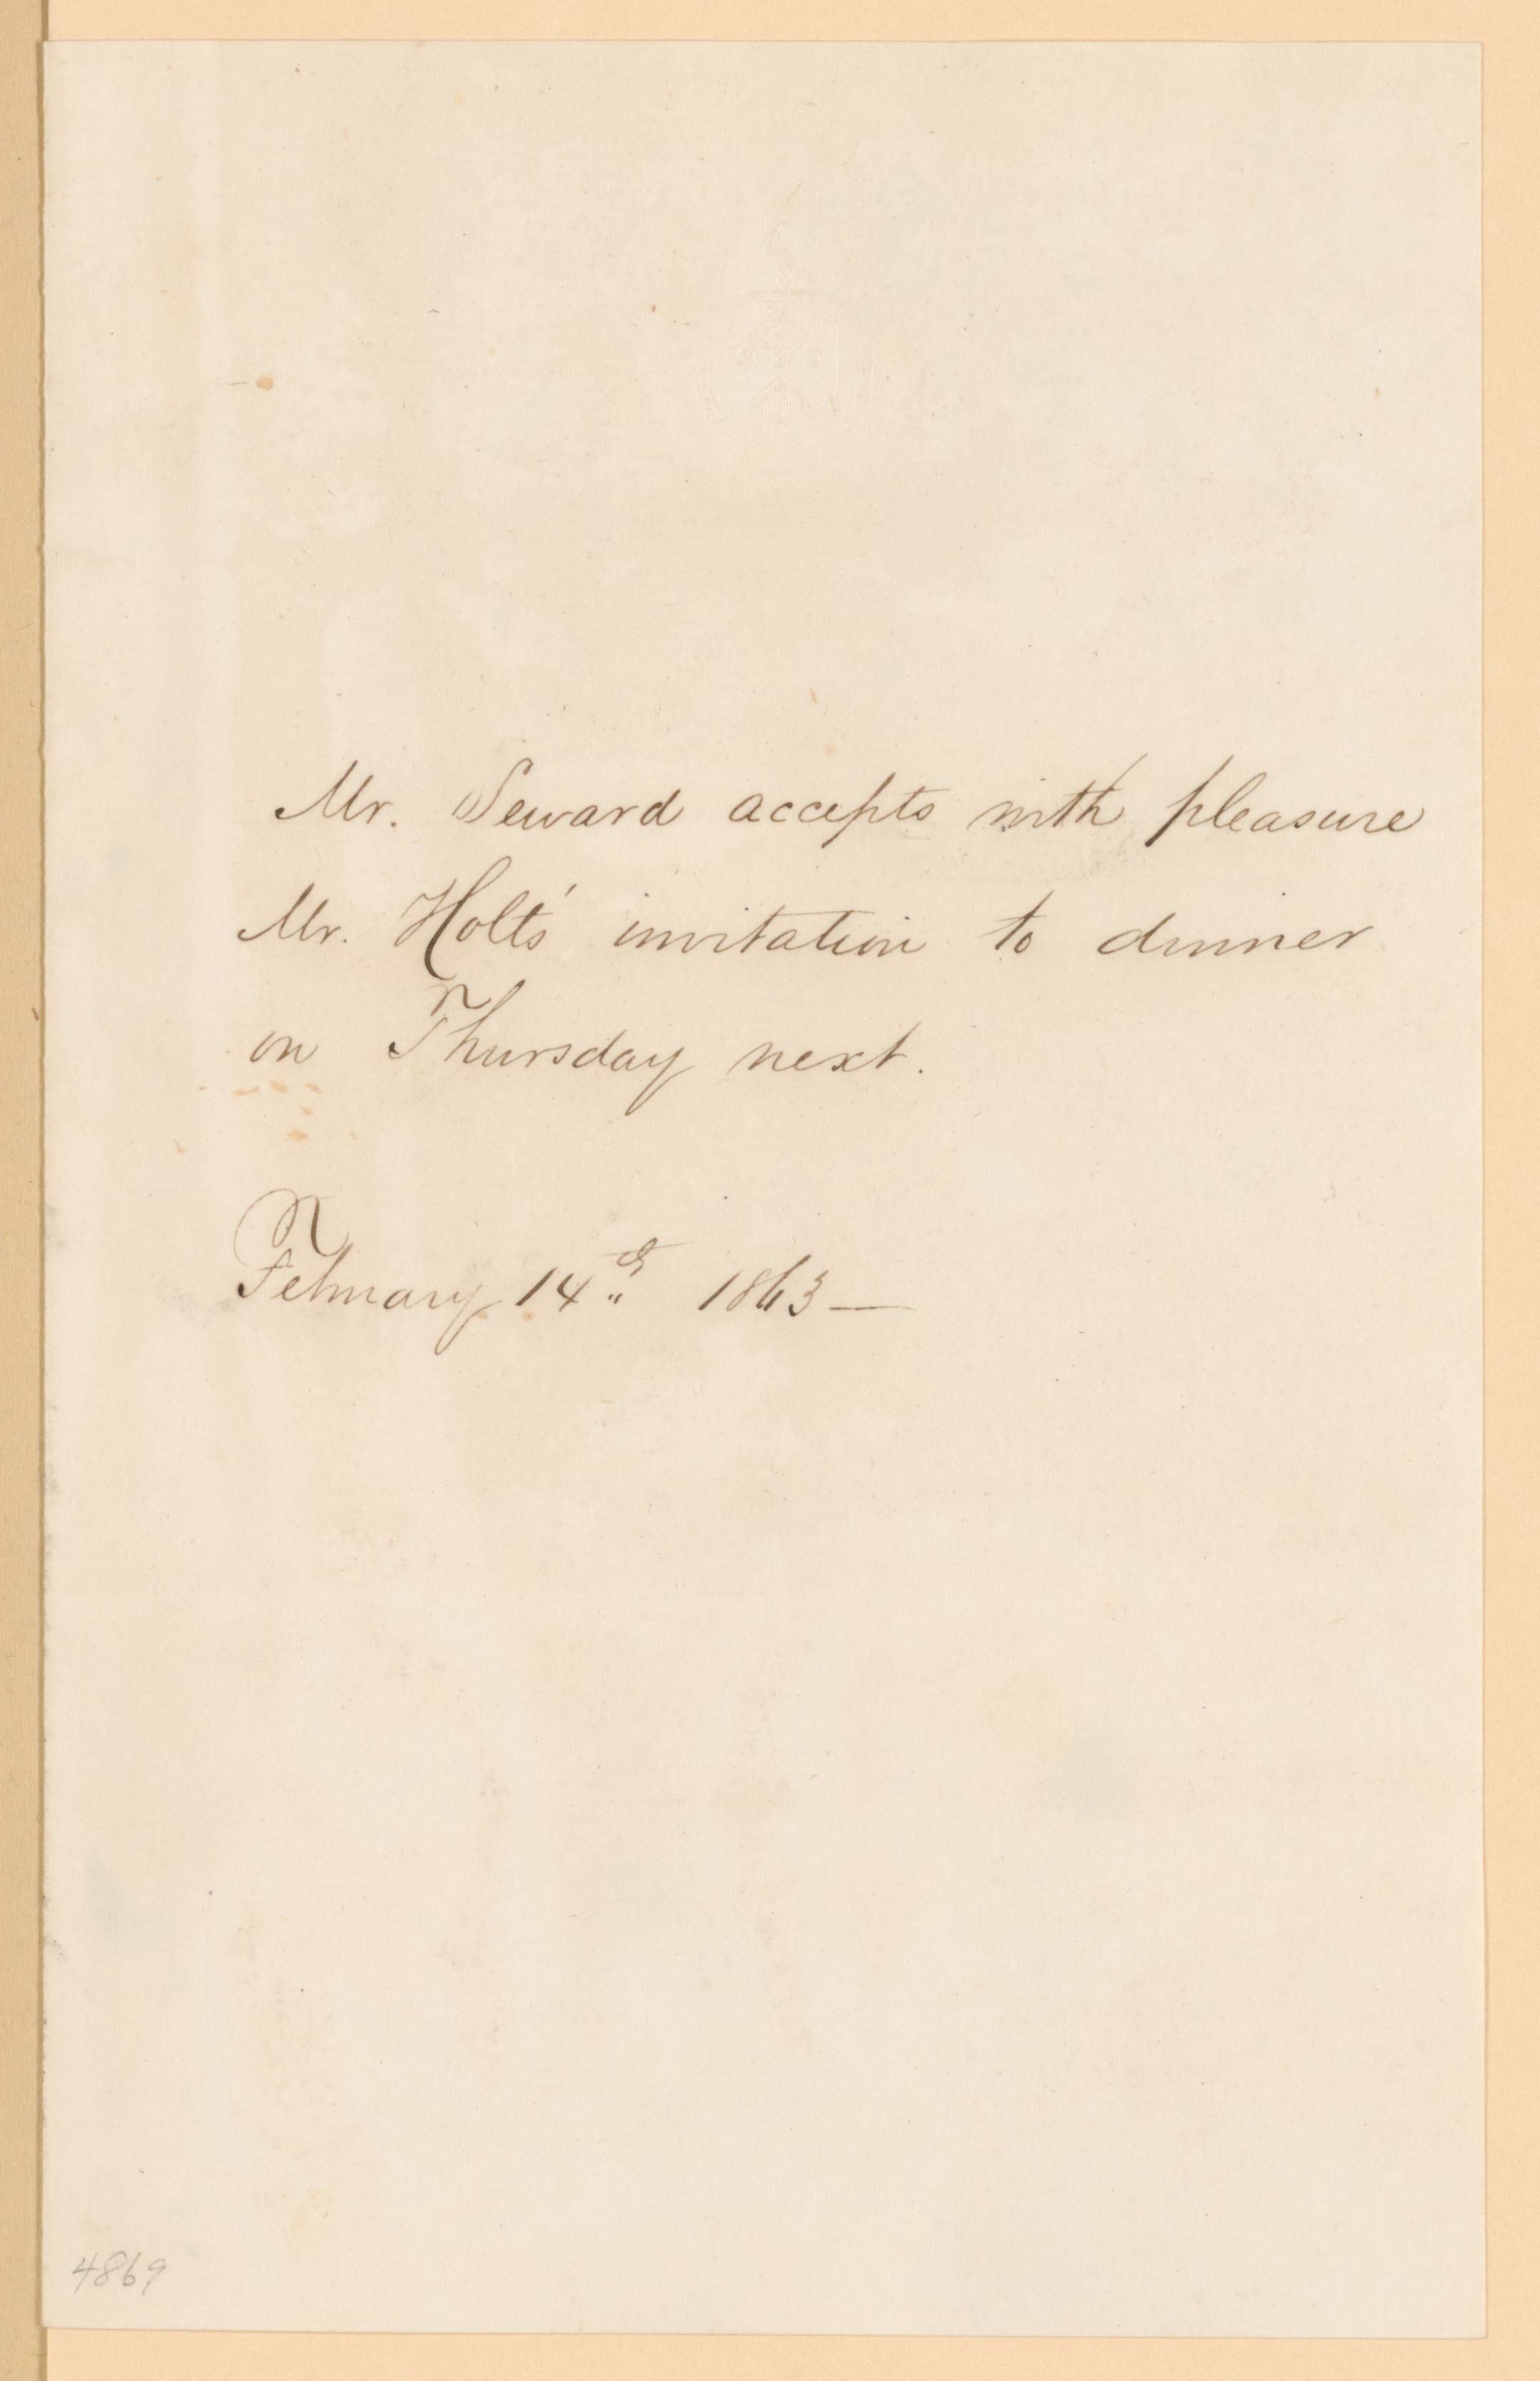 Mr. Seward accepts with pleasure
Mr. Holt's invitation to dinner
on Thursday next.
February 14th 1863—
4869